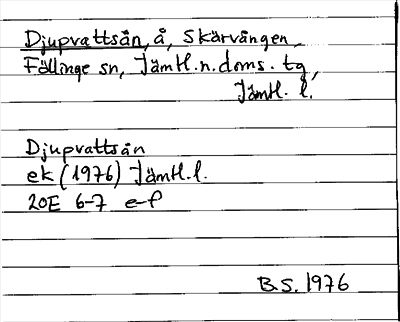 Djupvattsån, å, Skärvången,
Föllinge sn, Jämtl. n. doms. tg,
Jämtl. l.
Djupvattsån
ek (1976) Jämtl. l.
20E 6-7 e-f
B.S. 1976